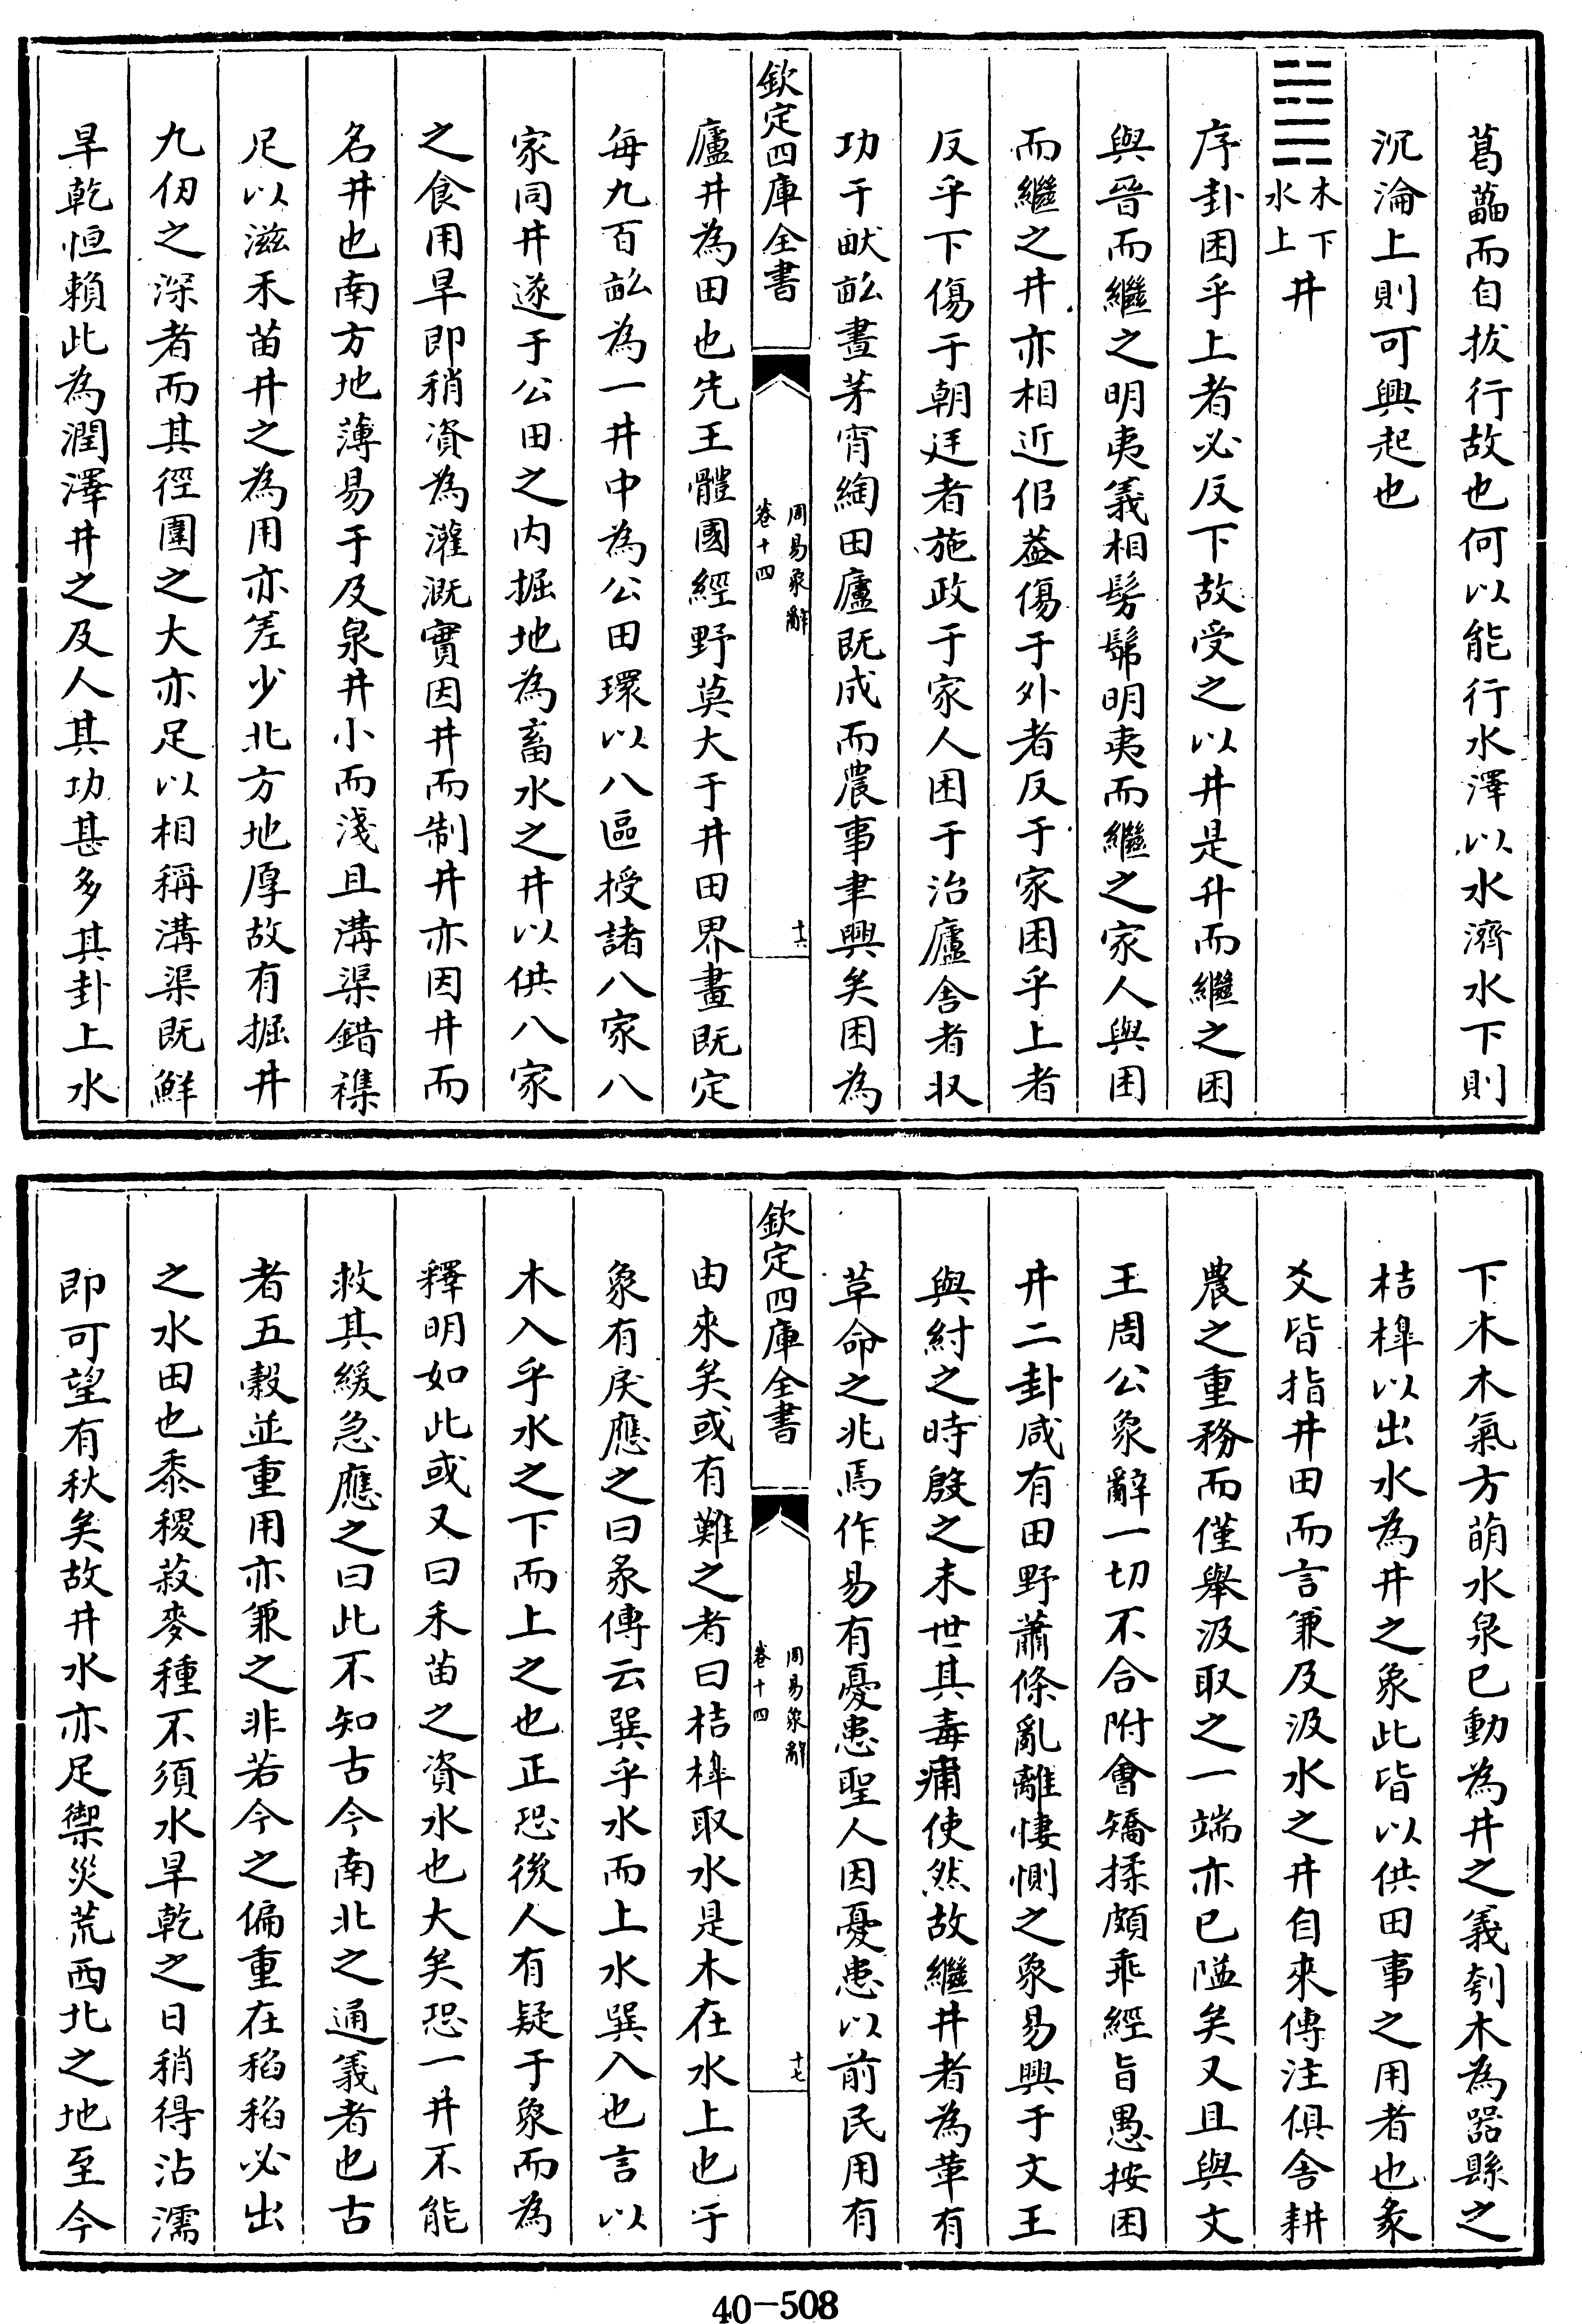 葛藟而自拔行故也何以能行水澤以水濟水下則
沉淪上則可興起也
䷯木下水上井
序卦困乎上者必反下故受之以井是升而繼之困
與晉而繼之明夷義相髣髴明夷而繼之家人與困
而繼之井亦相近佀葢傷于外者反于家困乎上者
反乎下傷于朝廷者施政于家人困于治廬舎者収
功于畎畝晝茅宵綯田廬既成而農事聿興矣困為
欽定四庫全書
周易象辭
卷十四
十六
廬井為田也先王體國經野莫大于井田界畫既定
每九百畝為一井中為公田環以八區授諸八家八
家同井遂于公田之内掘地為畜水之井以供八家
之食用旱即稍資為灌溉實因井而制井亦因井而
名井也南方地薄易于及泉井小而淺且溝渠錯襍
足以滋禾苗井之為用亦差少北方地厚故有掘井
九仞之深者而其徑圍之大亦足以相稱溝渠既鮮
旱乾恒賴此為潤澤井之及人其功甚多其卦上水
下木木氣方萌水泉已動為井之義刳木為器縣之
桔橰以出水為井之象此皆以供田事之用者也彖
爻皆指井田而言兼及汲水之井自來傳注俱舎耕
農之重務而僅舉汲取之一端亦已隘矣又且與文
王周公象辭一切不合附㑹矯揉頗乖經旨愚按困
井二卦咸有田野蕭條亂離悽惻之象易興于文王
與紂之時殷之末世其毒痡使然故繼井者為革有
草命之兆焉作易有憂患聖人因憂患以前民用有
欽定四庫全書
周易象辭
卷十四
十七
由來矣或有難之者曰桔橰取水是木在水上也于
象有戾應之曰彖傳云巽乎水而上水巽入也言以
木入乎水之下而上之也正恐後人有疑于象而為
釋明如此或又曰禾苗之資水也大矣恐一井不能
救其緩急應之曰此不知古今南北之通義者也古
者五榖並重用亦兼之非若今之偏重在稻稻必出
之水田也黍稷菽麥種不須水旱乾之日稍得沾濡
即可望有秋矣故井水亦足禦災荒西北之地至今
40-508